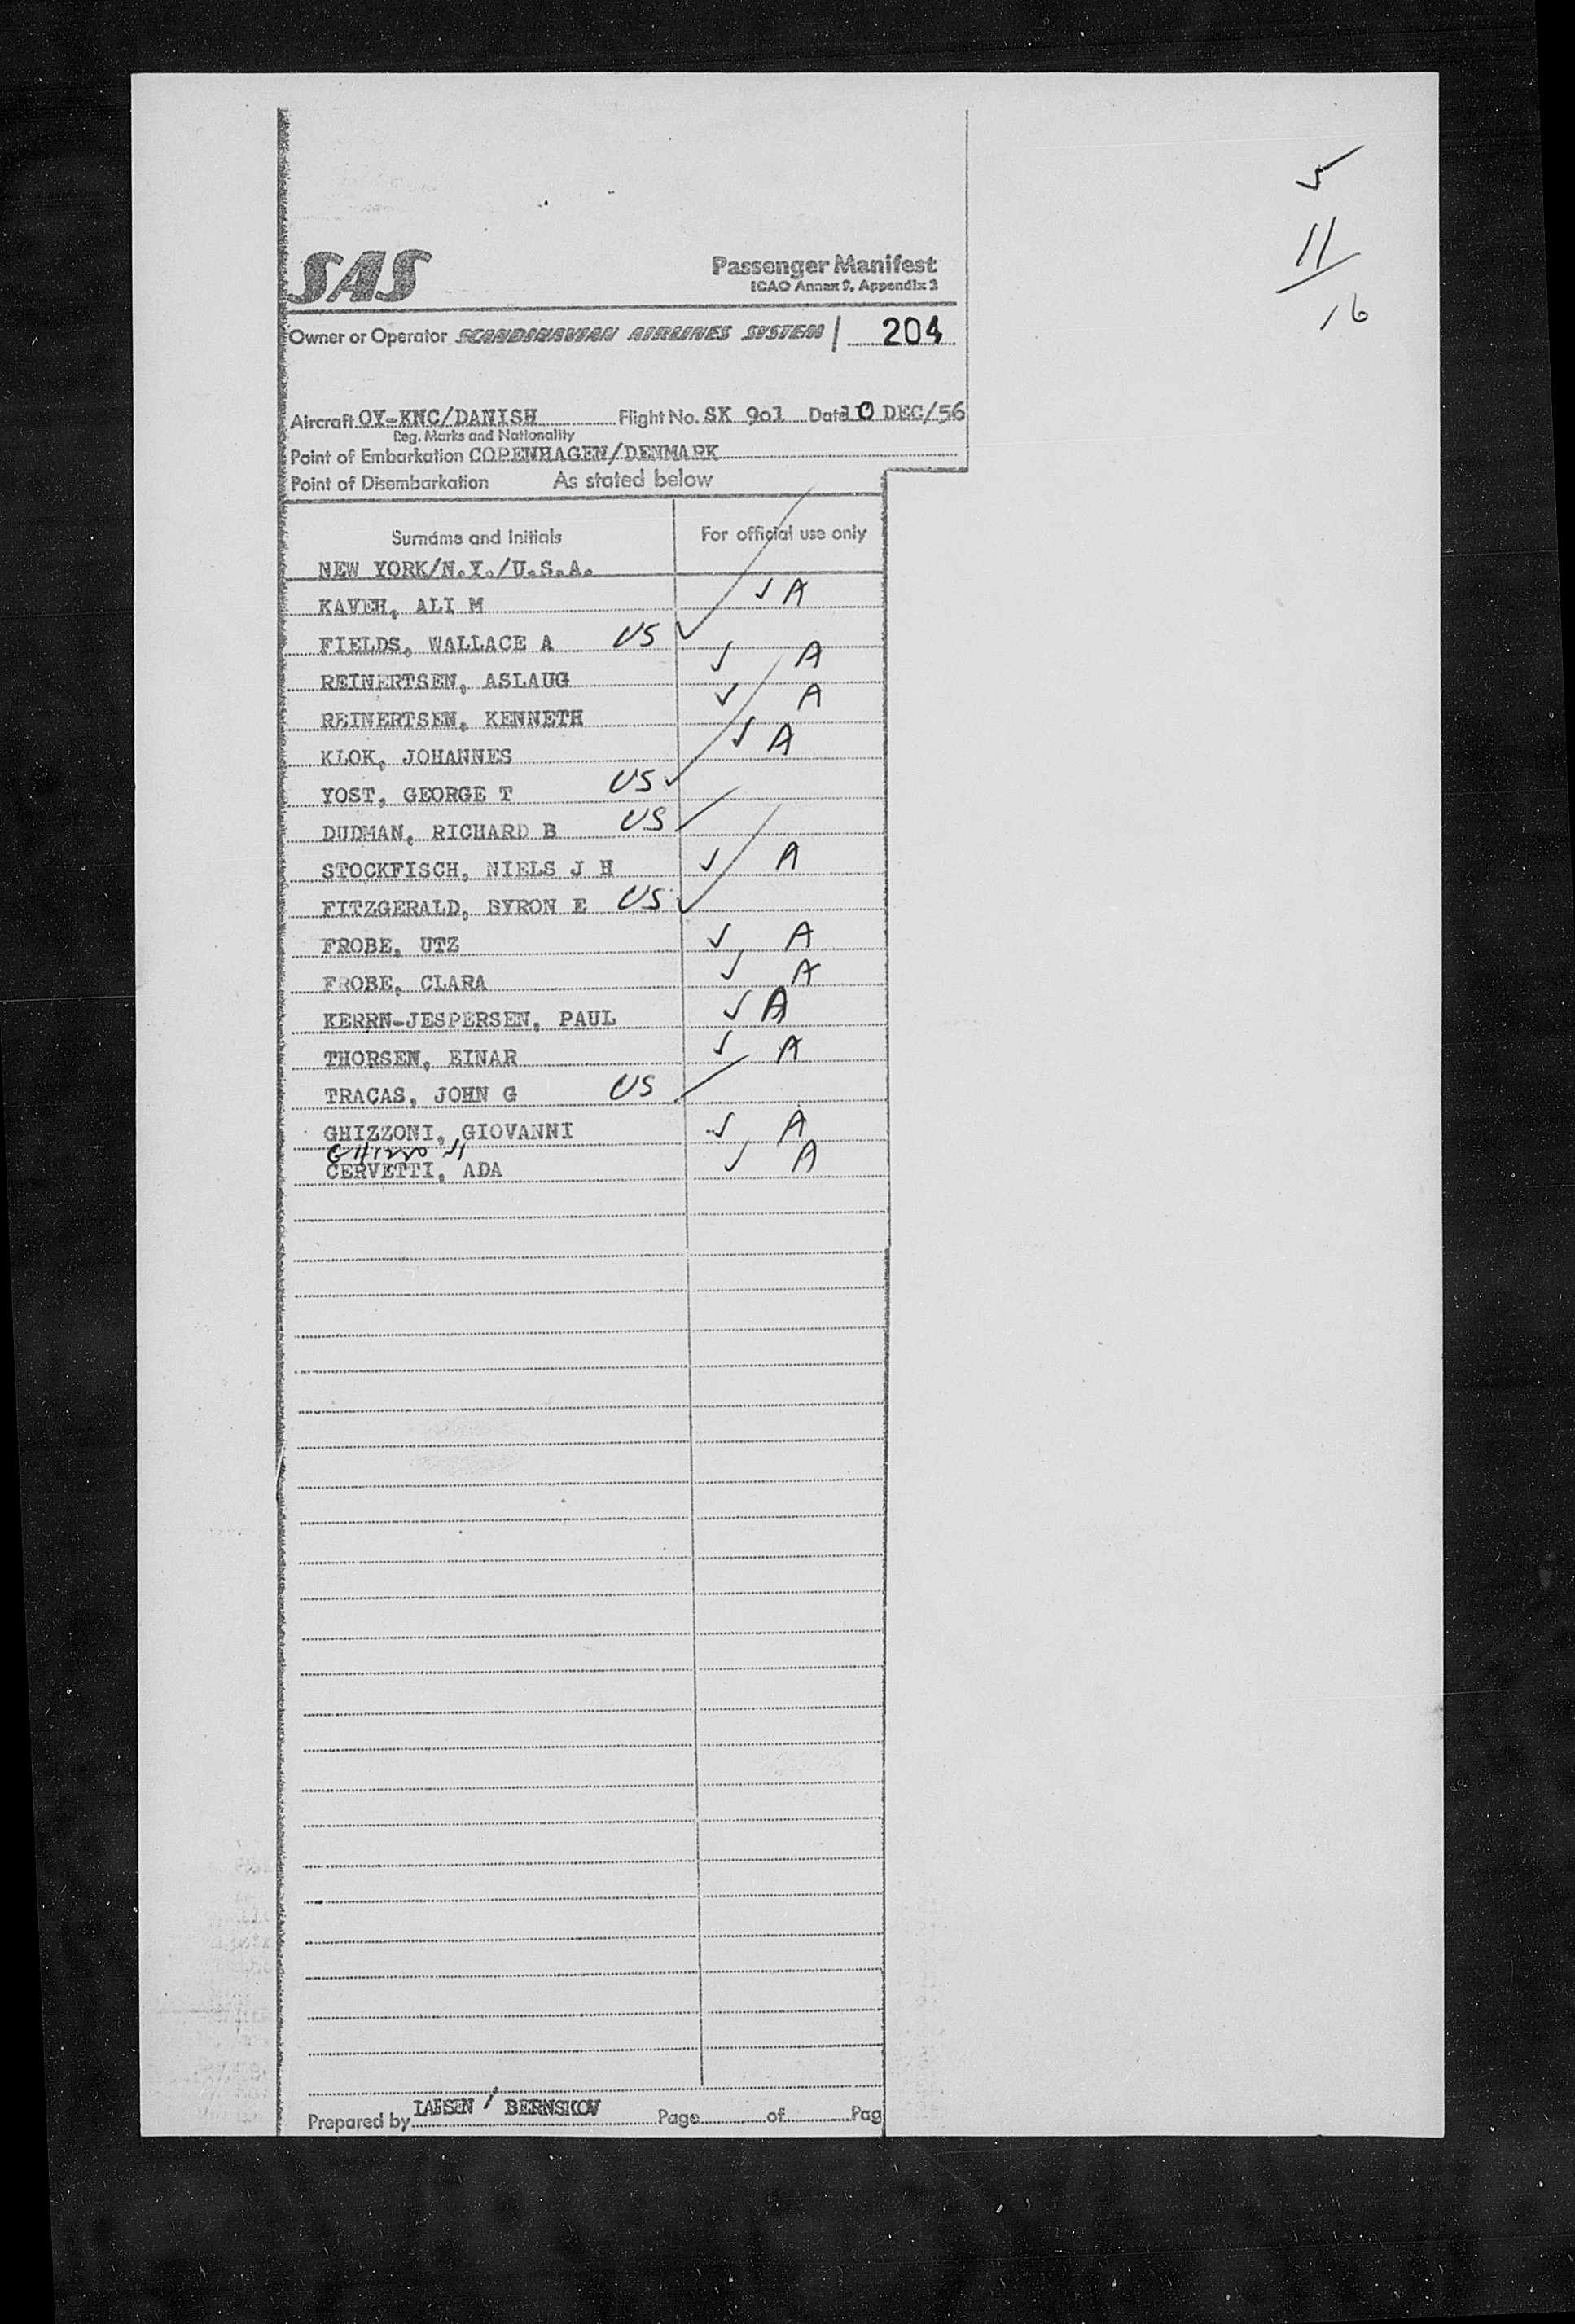 5
11
16
SAS
Passenger Manifest
ICAO Annex 9, Appendix 2
Owner or Operator SCANDINAVIAN AIRLINES SYSTEM / 204
Aircraft OY-KNC/DANISH Flight No. SK 901 Date 10 DEC/56
Reg. Marks and Nationality
Point of Embarkation COPENHAGEN/DENMARK
Point of Disembarkation As stated below
Surname and Initials For official use only
NEW YORK/N.Y./U.S.A.
KAVEH, ALI M ✓ A
FIELDS, WALLACE A US ✓
REINERTSEN, ASLAUG ✓ A
REINERTSEN, KENNETH ✓ A
KLOK, JOHANNES ✓ A
YOST, GEORGE T US ✓
DUDMAN, RICHARD B US ✓
STOCKFISCH, NIELS J H ✓ A
FITZGERALD, BYRON E US ✓
FROBE, UTZ ✓ A
FROBE, CLARA ✓ A
KERRN-JESPERSEN, PAUL ✓ A
THORSEN, EINAR ✓ A
TRACAS, JOHN G US ✓
GHIZZONI, GIOVANNI ✓ A
CERVETTI, ADA ✓ A
Prepared by / BERNSKOV Page of Pag